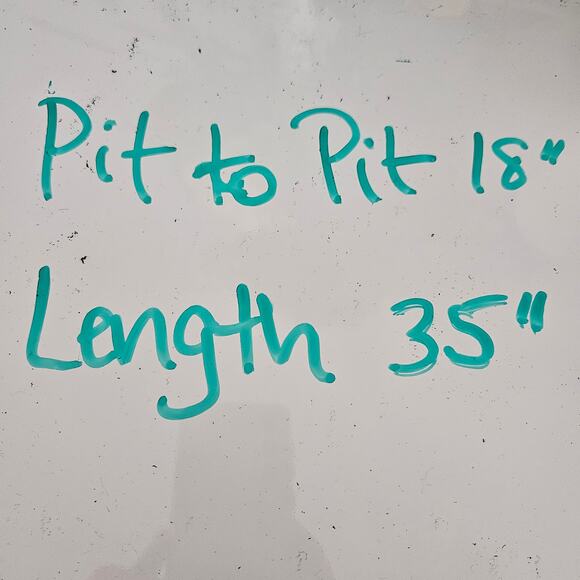 Pit to Pit 18"
Length 35"